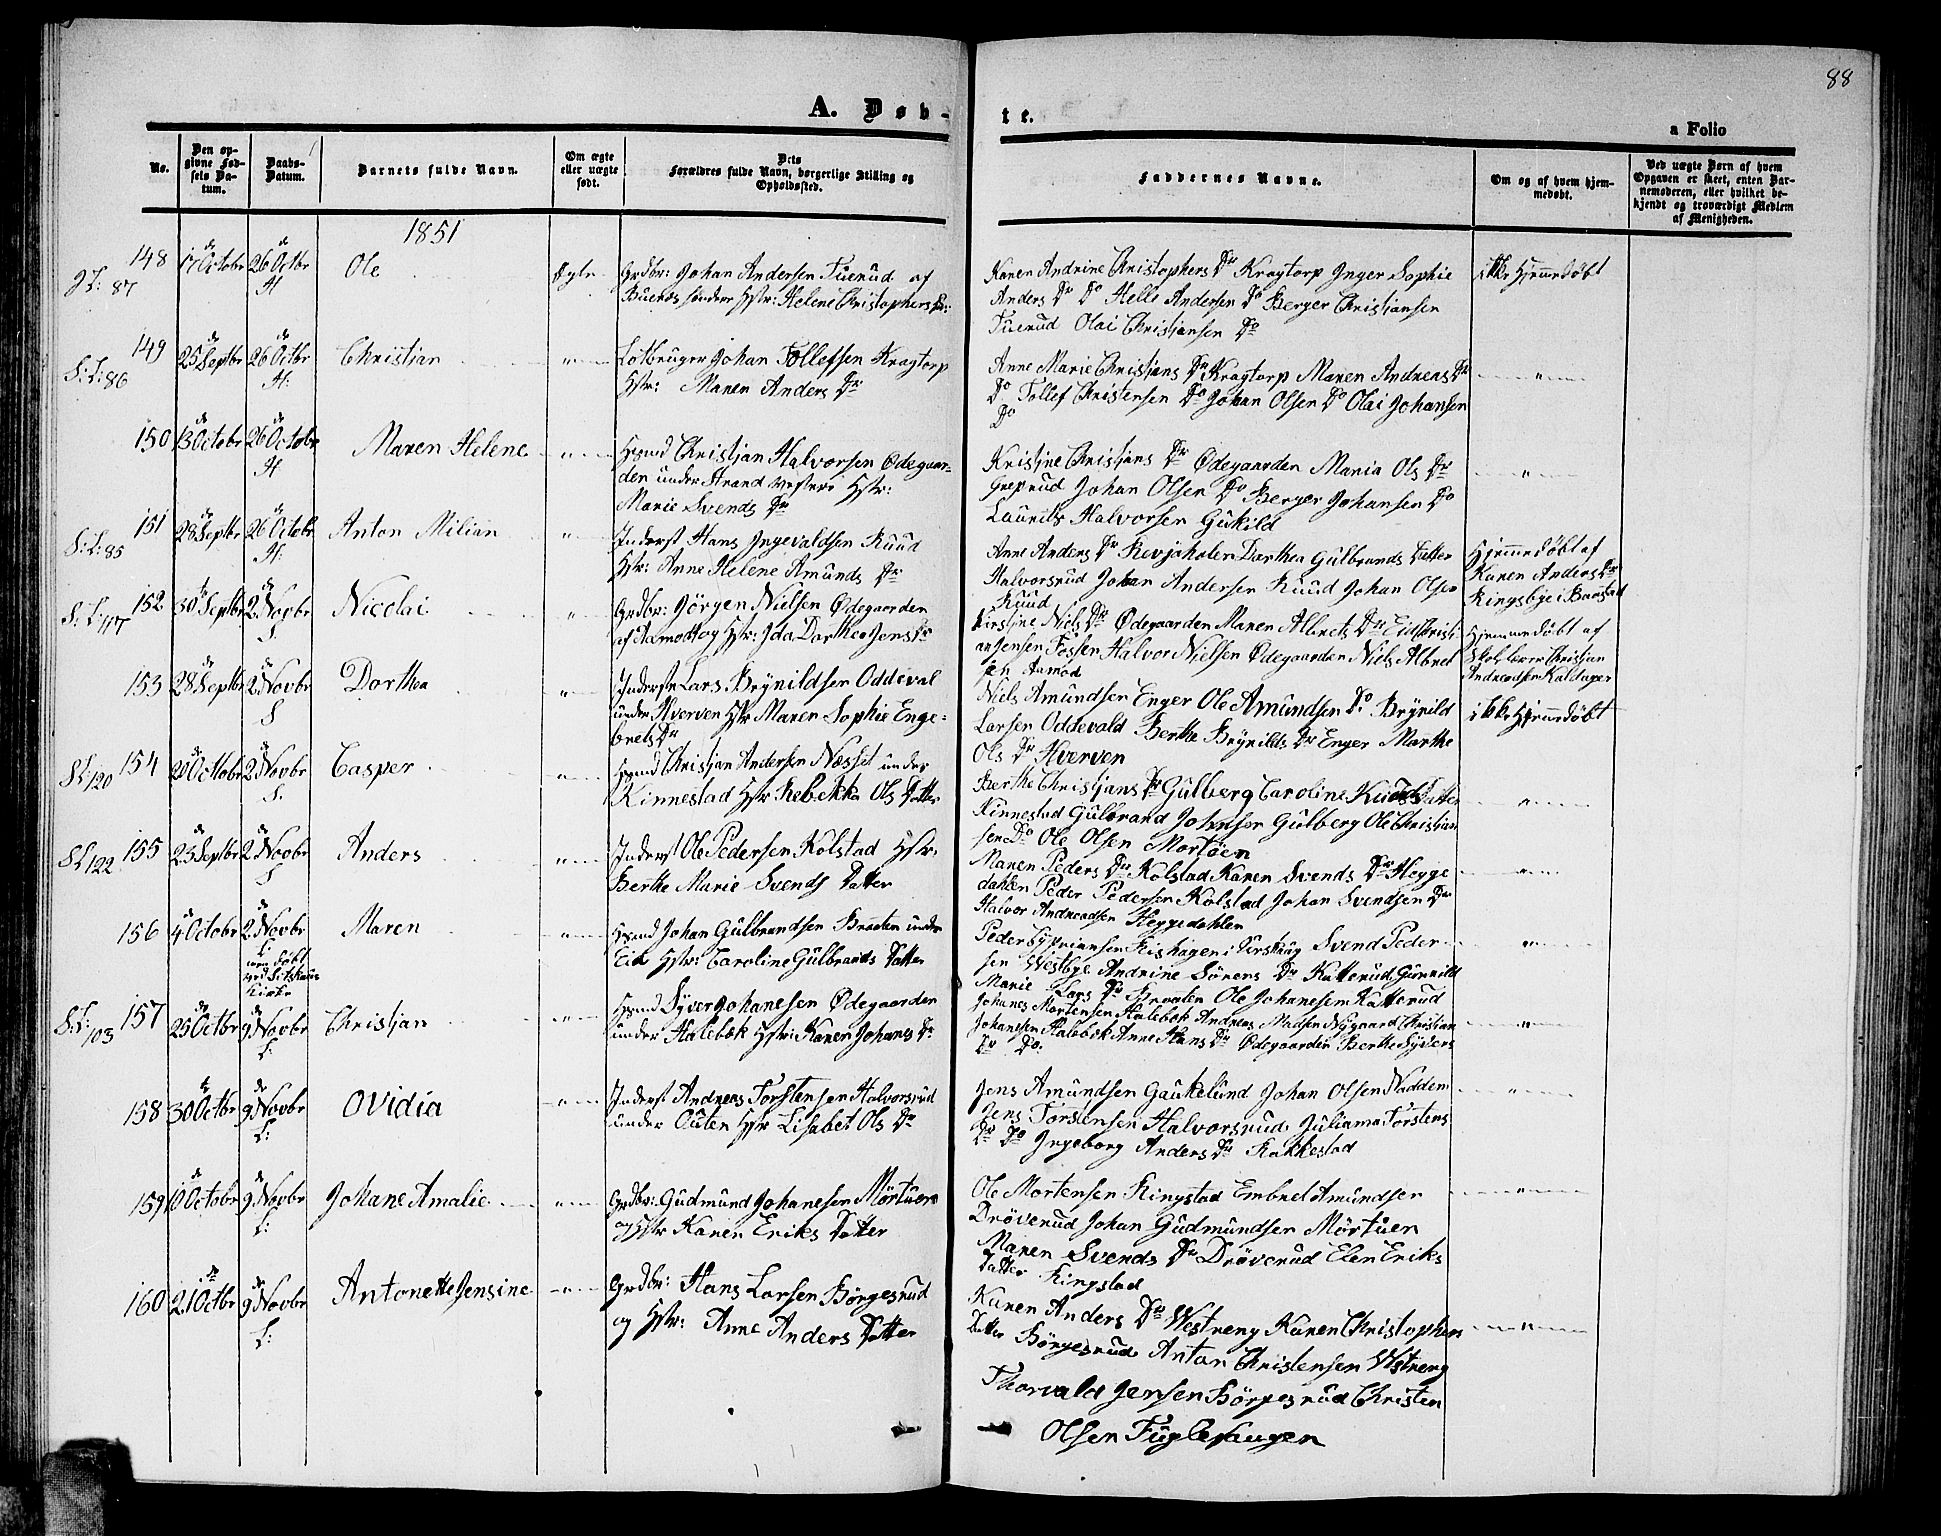 88
A. Døb-
te.
a Folio
No.
Den op-
givne Fød-
sels Da-
tum.
Daabs-
Datum.
Barnets fulde Navn.
Om ægte
eller uægte
født.
Dets
Forældres fulde Navn, borgerlige Stilling og
Opholdssted.
Faddernes Navne.
Om og af hvem hjem-
medøbt.
Ved uægte Børn af hvem
Opgaven er skeet, enten Bar-
nemoderen, eller hvilket be-
kjendt og troværdigt Medlem
af Menigheden.
1851
148 17 Octobr 26 Octbr Ole Ægte Grdbr: Johan Andersen Tuerud af
87 H Buenæs søndere Hstr: Helene Christophers Dr:
Karen Andrine Christophers Dr Kragtorp Inger Sophie
Anders Dr Do Helle Andersen Do Berger Christjansen
Tuerud Olai Christjansen Do
ikke Hjemmedøbt
149 25 Septbr 26 Octbr Christian Lotbruger Johan Tollefsen Kragtorp
S: L: 86 H: Hstr: Maren Anders Dr
Anne Marie Christjans Dr Kragtorp Maren Andreas Dr
Do Tollef Christensen Do Johan Olsen Do Olai Johansen
Do
150 13 Octobr 26 Octobr Maren Helene Hsmd Christjan Halvorsen Ødegaar-
H den under Strand vestre Hstr:
Marie Svends Dr
Kristine Christjans Dr Ødegaarden Maria Ols Dr
Greprud Johan Olsen Do Berger Johansen Do
Laurits Halvorsen Gukild
151 28 Septbr 26 Octobr Anton Milian Inderst Hans Ingevaldsen Ruud
S: L: 85 H: Hstr: Anne Helene Amunds Dr
Anne Anders Dr Revjahølen Dorthea Gulbrands Datter
Halvorsrud Johan Andersen Ruud Johan Olsen
Ruud
Hjemmedøbt af
Karen Anders Dr
Ringsbye i Baastad
152 30 Septbr 2 Novbr Nicolai Grdbr: Jørgen Nielsen Ødegaarden
S: L: 117 S. af Aamodt og Hstr: Ida Dorthea Jens Dr
Kirstine Niels Dr Ødegaarden Maren Albrets Dr Eid Christi-
an Jensen Fossen Halvor Nielsen Ødegaarden Niels Albret
sen Aamod
Hjemmedøbt af
Skolelærer Christjan
Andreadsen Kaldager
153 28 Septbr 2 Novbr Dorthea Inderste Lars Brynildsen Oddeval
S under Hverven Hstr Maren Sophie Enge-
brets Dr
Niels Amundsen Enger Ole Amundsen Do. Brynild
Larsen Oddevald Berthe Brynilds Dr Enger Marthe
Ols Dr Hverven
ikke Hjemmedøbt
154 20 Octobr 2 Novbr Casper Hsmd Christjan Andersen Næsset under
SL 120 S. Kinnestad Hstr Rebekka Ols Datter
Berthe Christjans Dr Gulberg Caroline Knuds Datter
Kinnestad Gulbrand Johnsen Gulberg Ole Christjan
sen Do Ole Olsen Mortøen
155 23 Septbr 2 Novbr Anders Inderst Ole Pedersen Kolstad Hstr:
SL 122 S Berthe Marie Svends Datter
Maren Peders Dr Kolstad Karen Svends Dr Hegge
dahlen Peder Pedersen Kolstad Johan Svendsen Dr
Halvor Andreadsen Heggedahlen
156 4 Octobr 2 Novbr Maren Hsmd Johan Gulbrandsen Braaten under
L Eid Hstr: Caroline Gulbrands Datter
men døbt
ved
Kirke
Peder Cypriansen Rishagen i Svend Peder
sen Westbye Andrine Sørens Dr Katterud Gunnild
Marie Lars Dr Braaten Ole Johanesen Katterud
157 25 Octbr 9 Novbr Christjan Hsmd Syver Johanesen Ødegaarden
S: L: 103 L: under Halebæk Hstr: Karen Johanes Dr
Johanes Mortensen Halebøk Andreas Madsen Nygaard Christian
Johanesen Halebøk Anne Hans Dr Ødegaarden Berthe Syvers
Dr Do.
158 30 Octbr 9 Novbr Ovidia Inderst Andreas Torstensen Halvorsrud
L: under Outen Hstr Lisabet Ols Dr
Jens Amundsen Gaukelund Johan Olsen Nadden
Jens Torstensen Halvorsrud Juliana Torstens
Dr Do Ingeborg Anders Dr Rakkestad
159 10 Octobr 9 Novbr Johane Amalie Grdbr: Gudmund Johanesen Mørtuen
L: og Hstr Karen Eriks Datter
Ole Mortensen Ringstad Embret Amundsen
Drøverud Johan Gudmundsen Mørtuen
Maren Svends Dr Drøverud Elen Eriks
Datter Ringstad
160 21 Octbr 9 Novbr Antonette Jensine Grdbr: Hans Larsen Børgesrud
L: og Hstr: Anne Anders Datter
Karen Anders Dr Westreng Karen Christophers
Datter Børgesrud Anton Christensen Westreng
Thorvald Jensen Børgesrud Christen
Olsen Fuglehaugen